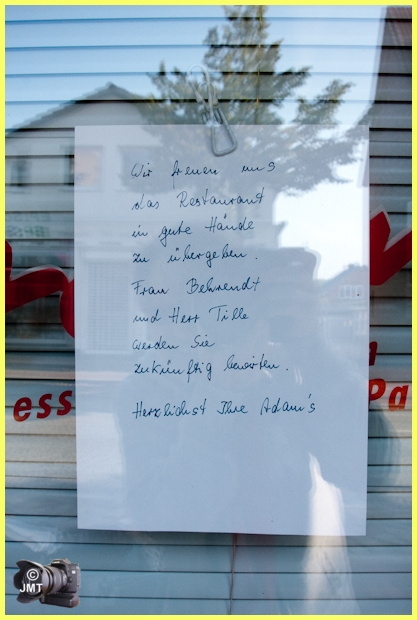 Wir freuen uns
das Restaurant
in gute Hände
zu übergeben.
Frau Behrendt
und Herr Tille
werden Sie
zukünftig bewirten.
Herzlichst Ihre Adam's
ess
Pa
© JMT